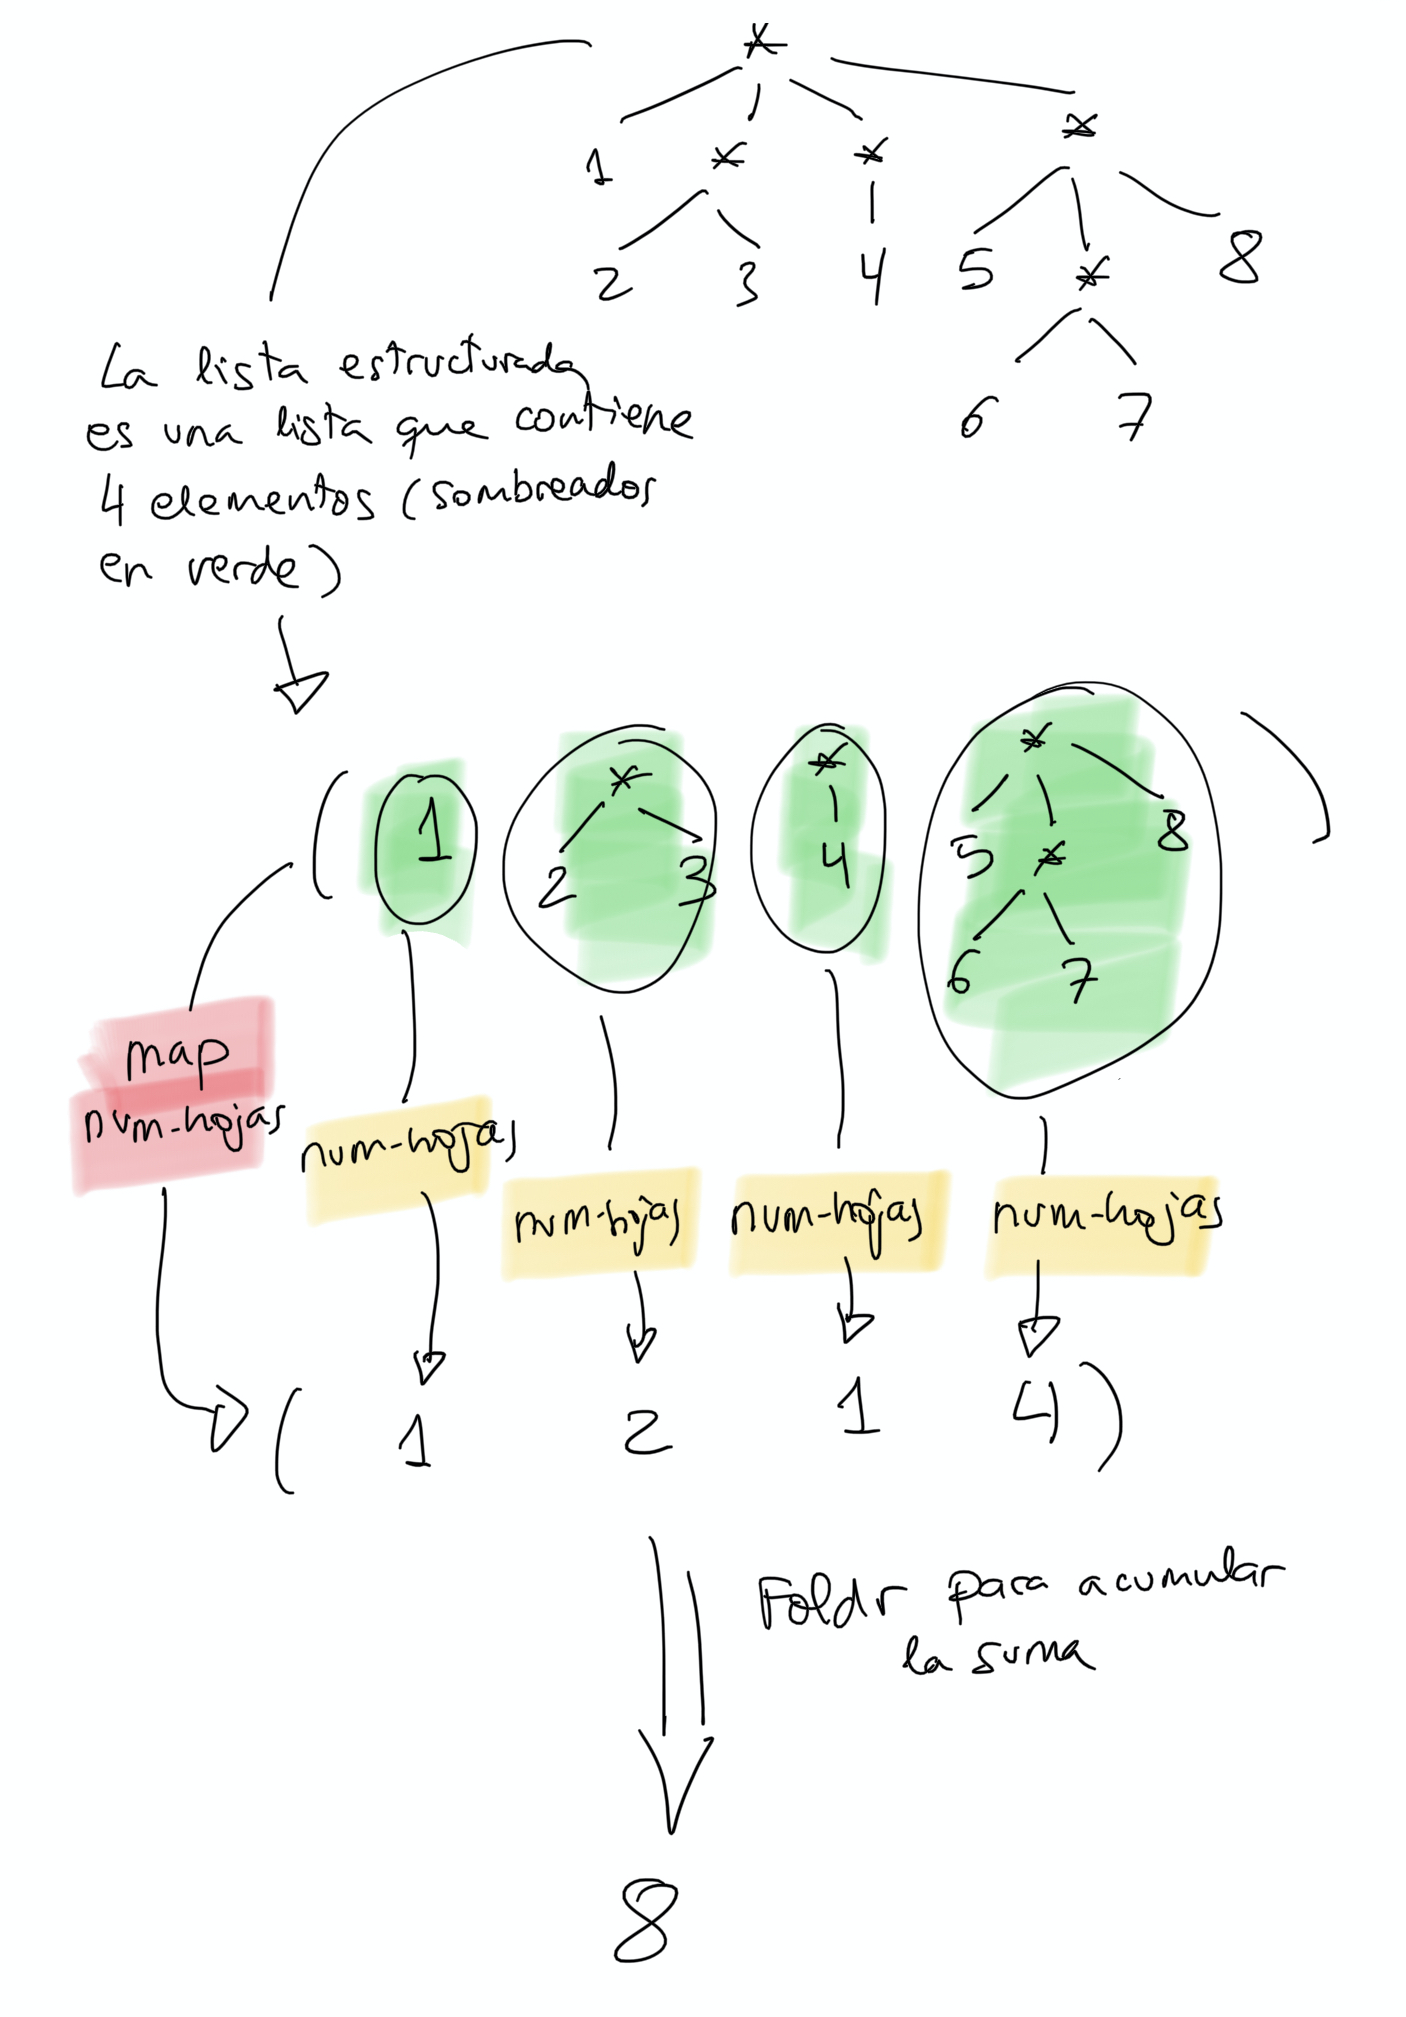 *
1 * * *
2 3 4 5 * 8
6 7
La lista estructurada
es una lista que contiene
4 elementos (sombreados
en verde)
( 1 * * * )
2 3 4 5 * 8
6 7
map
num-hojas
num-hojas num-hojas num-hojas num-hojas
( 1 2 1 4 )
Foldr para acumular
la suma
8